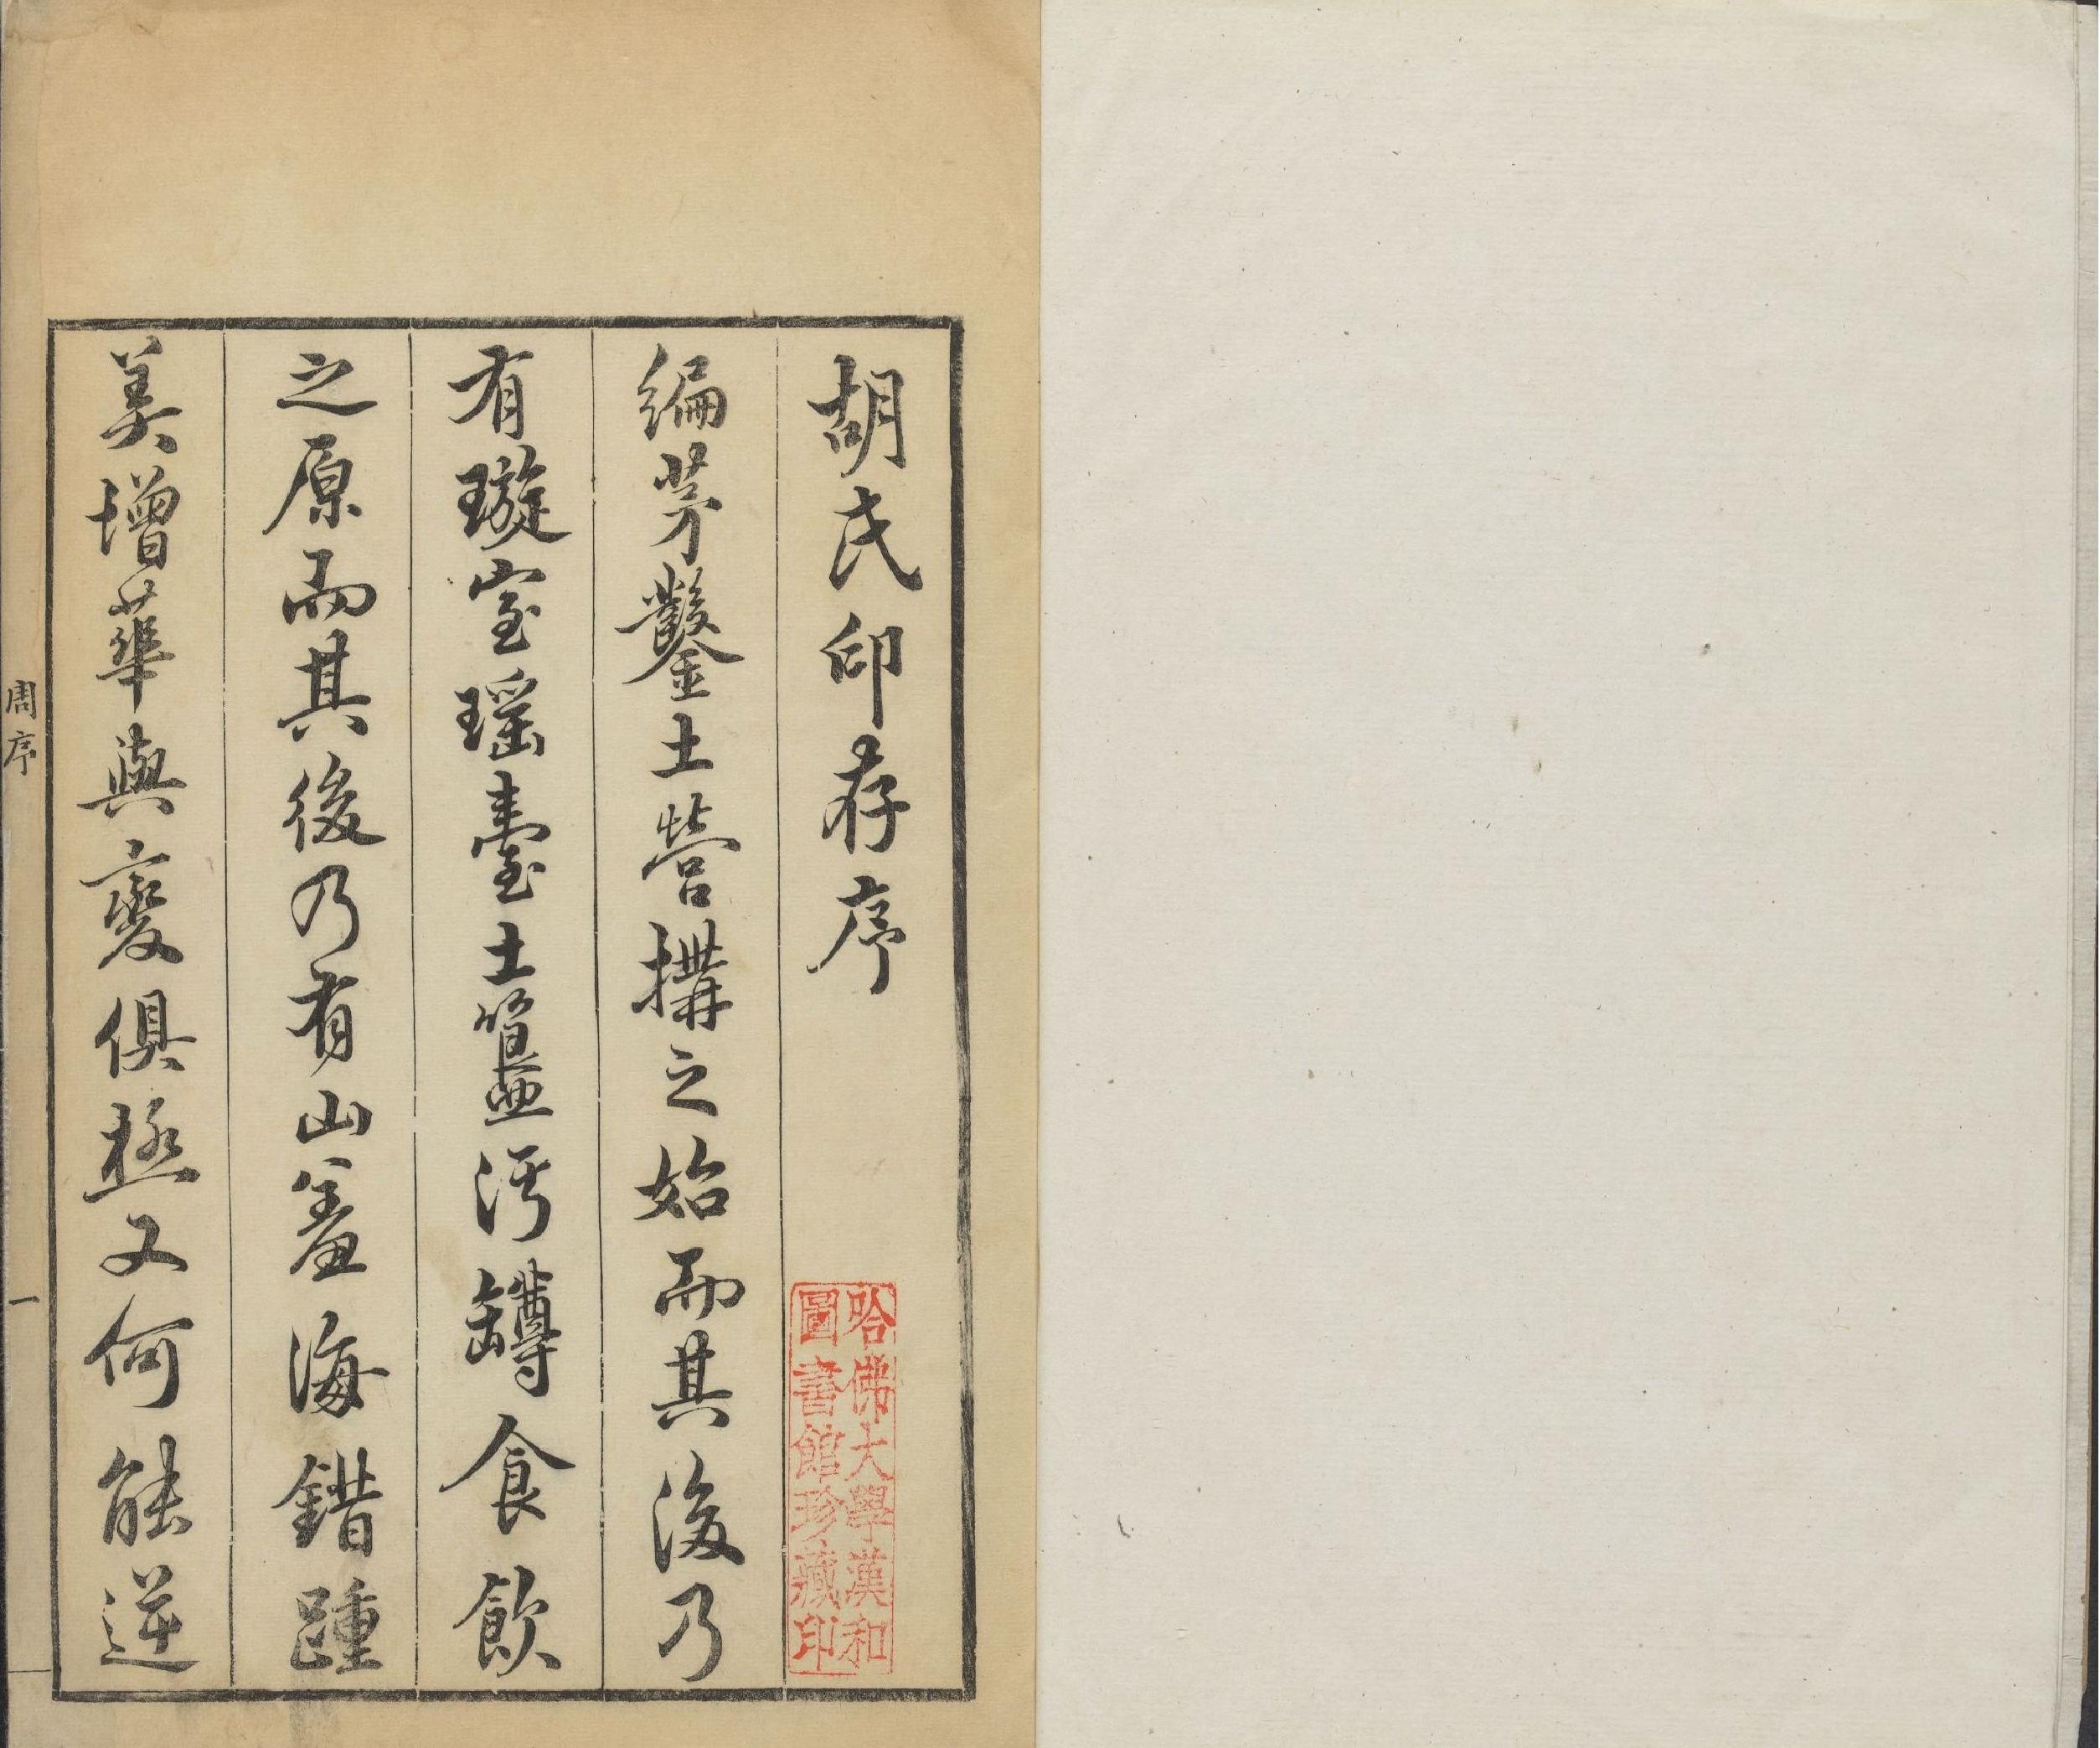 胡氏印存序
編茅鑿土營搆之始而其後乃
有璇室瑶臺土簋污罇食飲
之原而其後乃有山羞海錯踵
美增華與變俱極又何能逆
哈佛大學漢和
圖書館珍藏印
周序
一